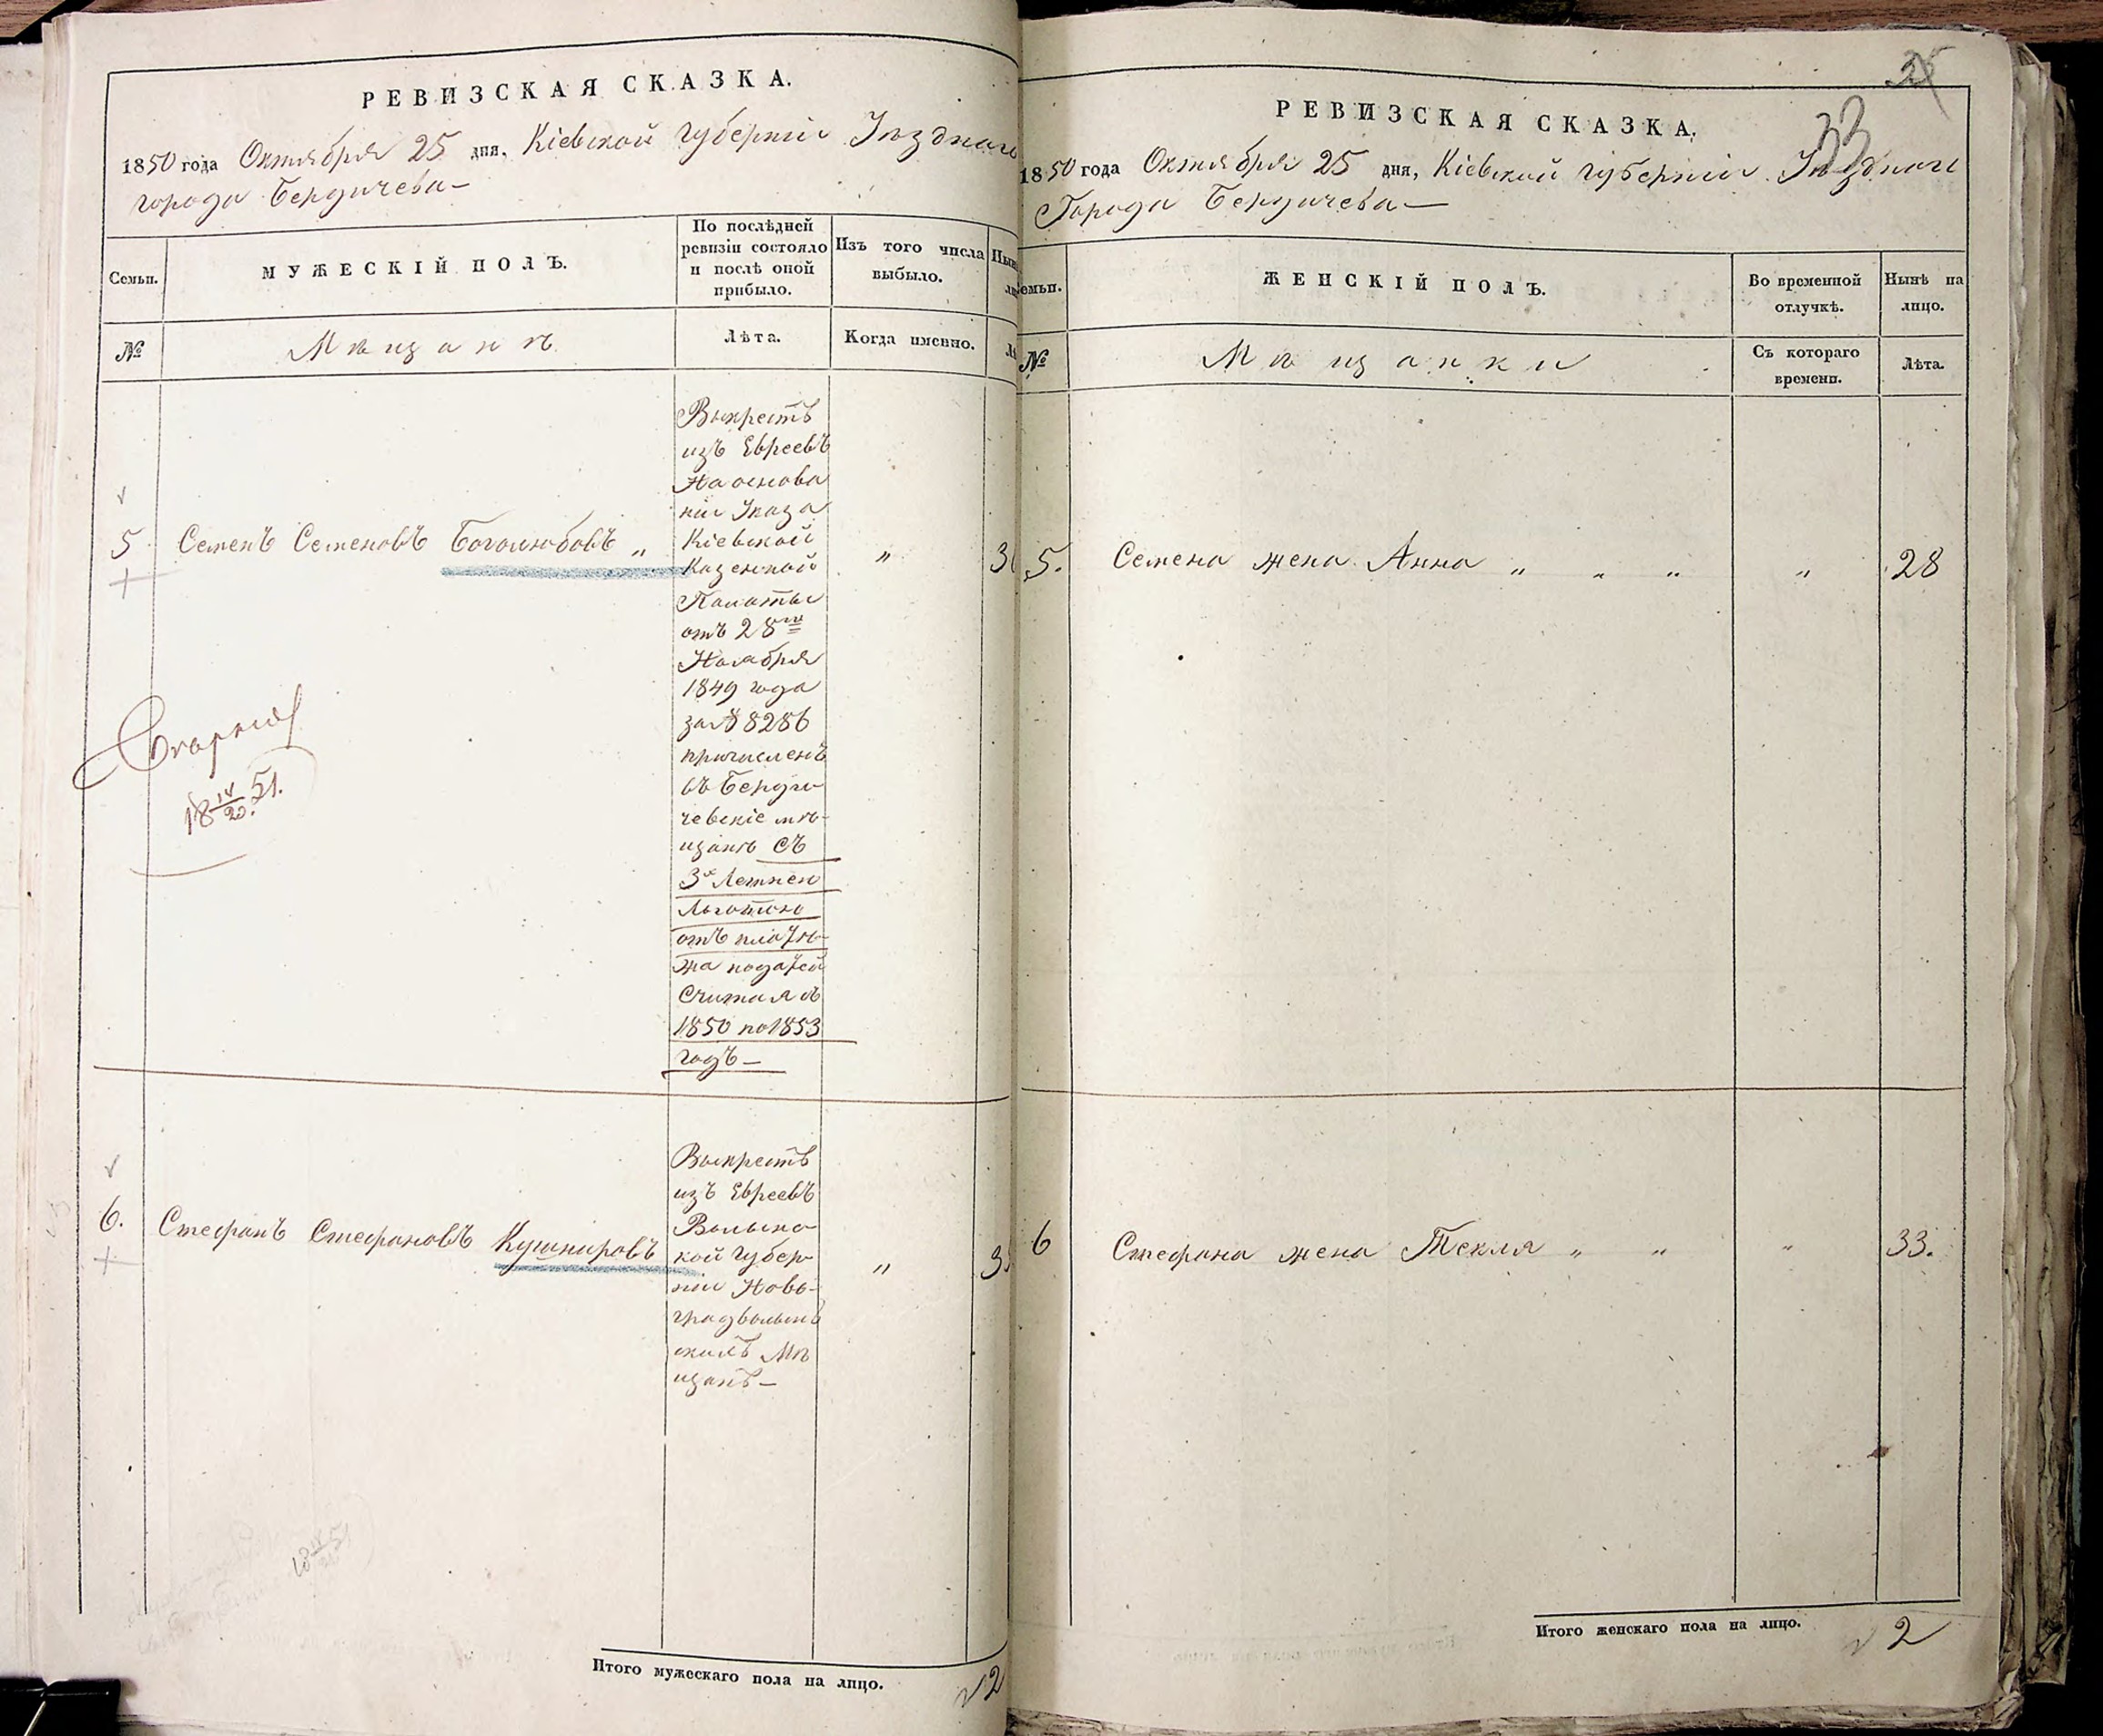 РЕВИЗСКАЯ СКАЗКА.
1850 года Октября 25 дня, Кіевской губерніи Уѣзднаго
города Бердичева —
Семьи.
МУЖЕСКІЙ ПОЛЪ.
По послѣдней
ревизіи состояло
и послѣ оной
прибыло.
Изъ того числа
выбыло.
№
Мѣщанъ
Лѣта.
Когда именно.
Выкрестъ
изъ Евреевъ
На основа
ніи Указа
5 Семенъ Семеновъ Боголюбовъ „ Кіевской „
Казенной
Палаты
отъ 28го
Ноября
1849 года
за № 8286
причисленъ
въ Берди-
чевскіе мѣ-
щане съ
3х Летнею
Льготою
отъ плате-
жа податей
Считая съ
1850 по 1853
годъ —
18 IV/20 51.
Выкрестъ
изъ Евреевъ
6. Стефанъ Стефановъ Кушнировъ Волынс
кой Губер- „
ніи Ново-
градволын
скихъ Мѣ
щанъ —
18 IV/20 51
Итого мужескаго пола на лицо. 2
25
33
РЕВИЗСКАЯ СКАЗКА.
1850 года Октября 25 дня, Кіевской губерніи Уѣзднаго
Города Бердичева —
Семьи.
ЖЕНСКІЙ ПОЛЪ.
Во временной
отлучкѣ.
Нынѣ на
лицо.
№
Мѣщанки
Съ котораго
времени.
Лѣта.
5. Семена жена Анна „ „ „ „ 28
6 Стефана жена Текля „ „ „ 33.
Итого женскаго пола на лицо. 2